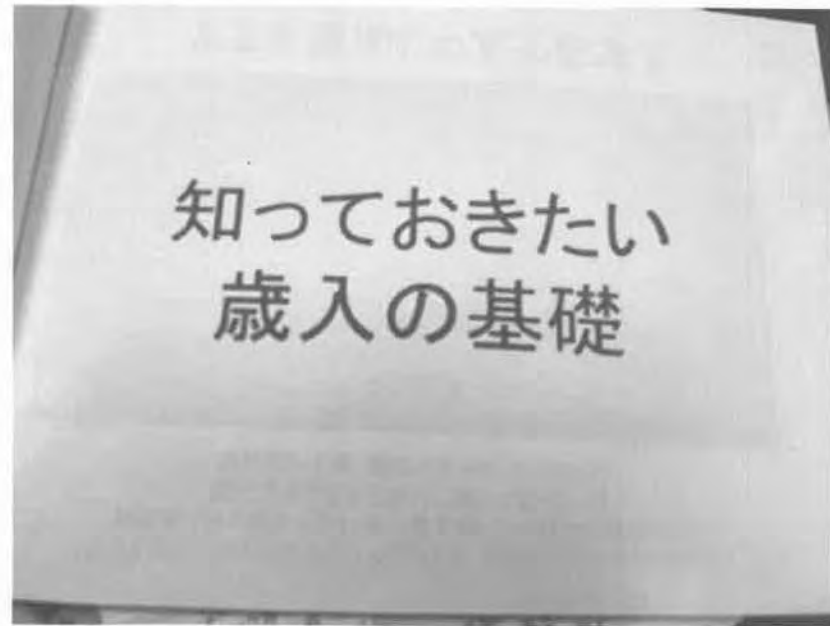 知っておきたい
歳入の基礎